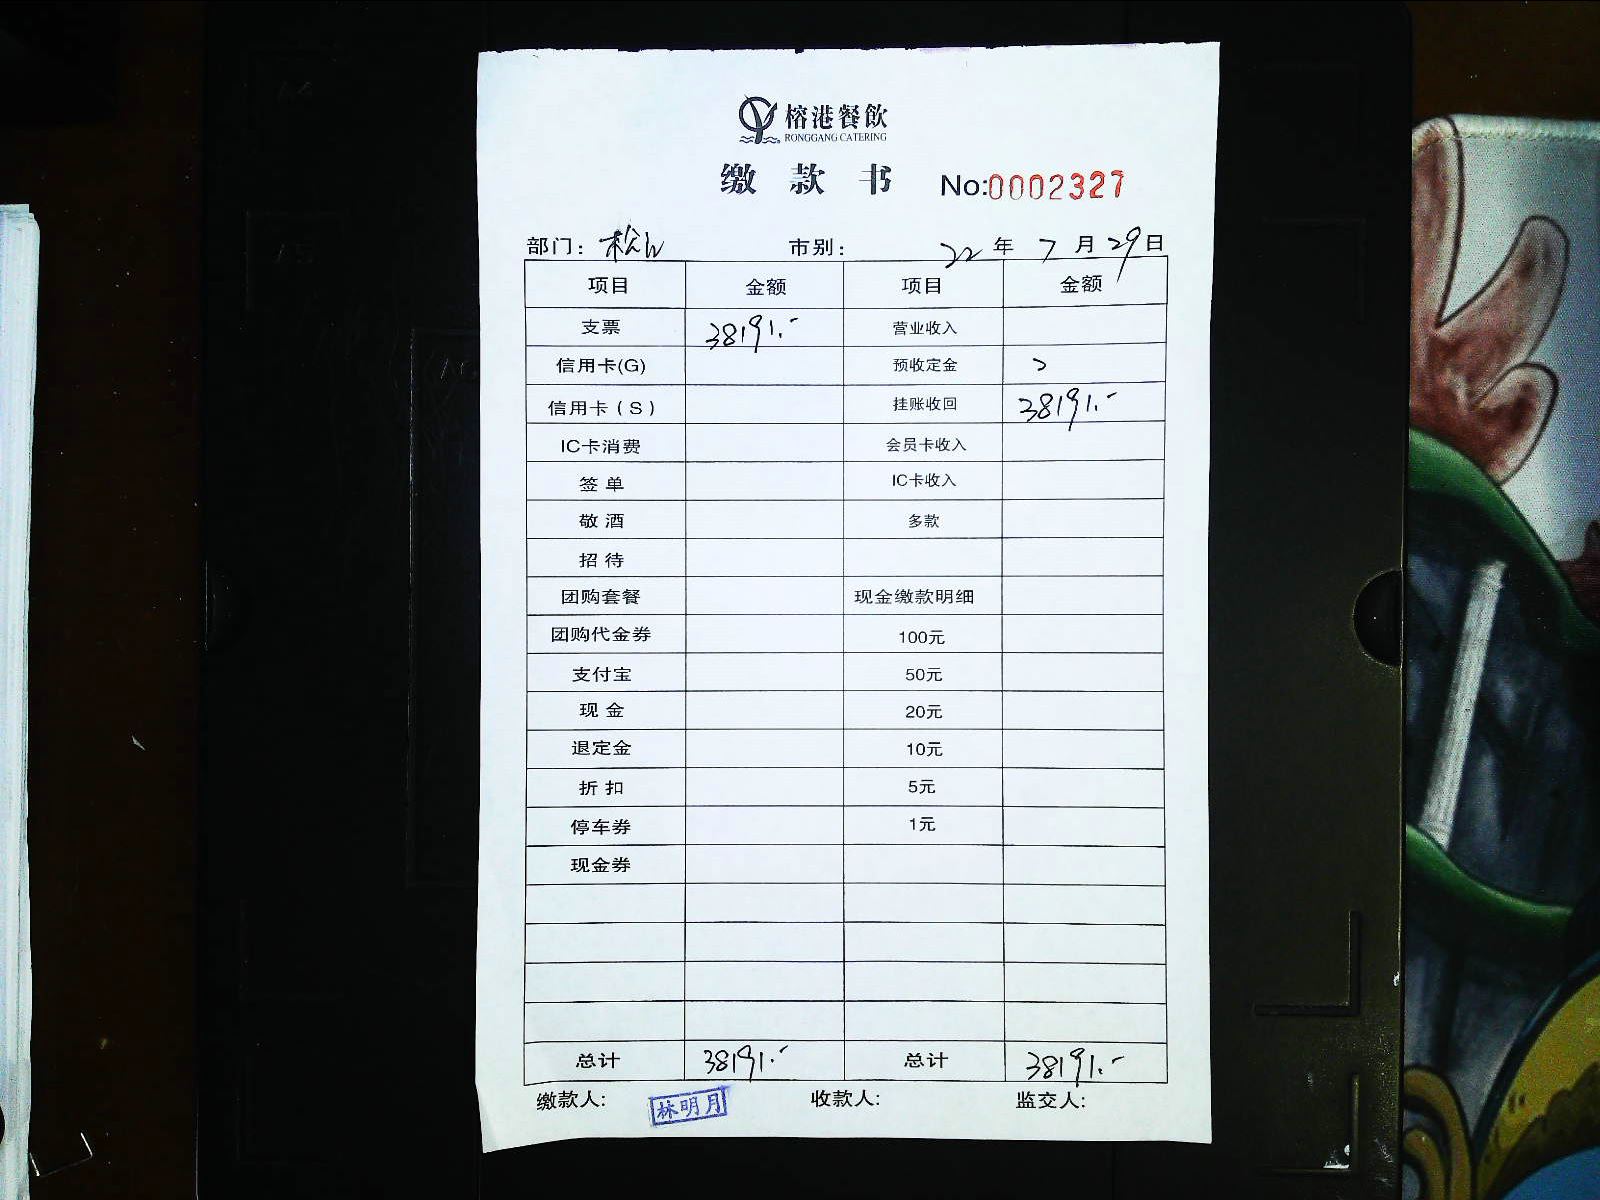 榕港餐飲
RONGGANG CATERING
缴 款 书 No:0002327
部门: 松山 市别: 22 年 7 月 29 日
项目 金额 项目 金额
支票 38191.- 营业收入
信用卡(G) 预收定金
信用卡(S) 挂账收回 38191.-
IC卡消费 会员卡收入
签单 IC卡收入
敬酒 多款
招待
团购套餐 现金缴款明细
团购代金券 100元
支付宝 50元
现金 20元
退定金 10元
折扣 5元
停车券 1元
现金券
总计 38191.- 总计 38191.-
缴款人: 林明月 收款人: 监交人: